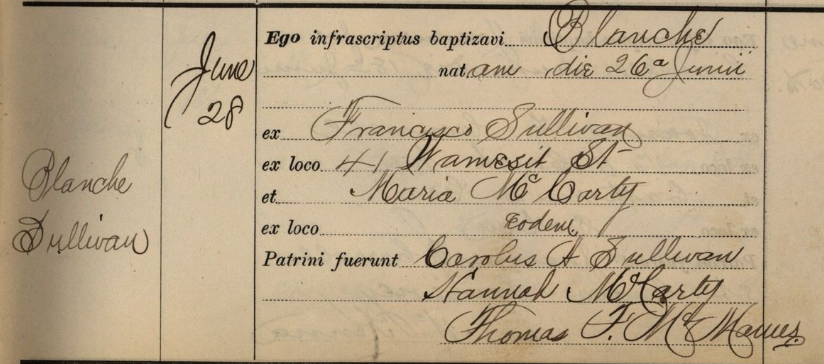 June
28
Blanche
Sullivan
Ego infrascriptus baptizavi Blanche
natam die 26a Junii
ex Francisco Sullivan
ex loco 41 Wamesit St
et Maria McCarty
ex loco eodem
Patrini fuerunt Carolus A Sullivan
Hannah McCarty
Thomas F. McManus.